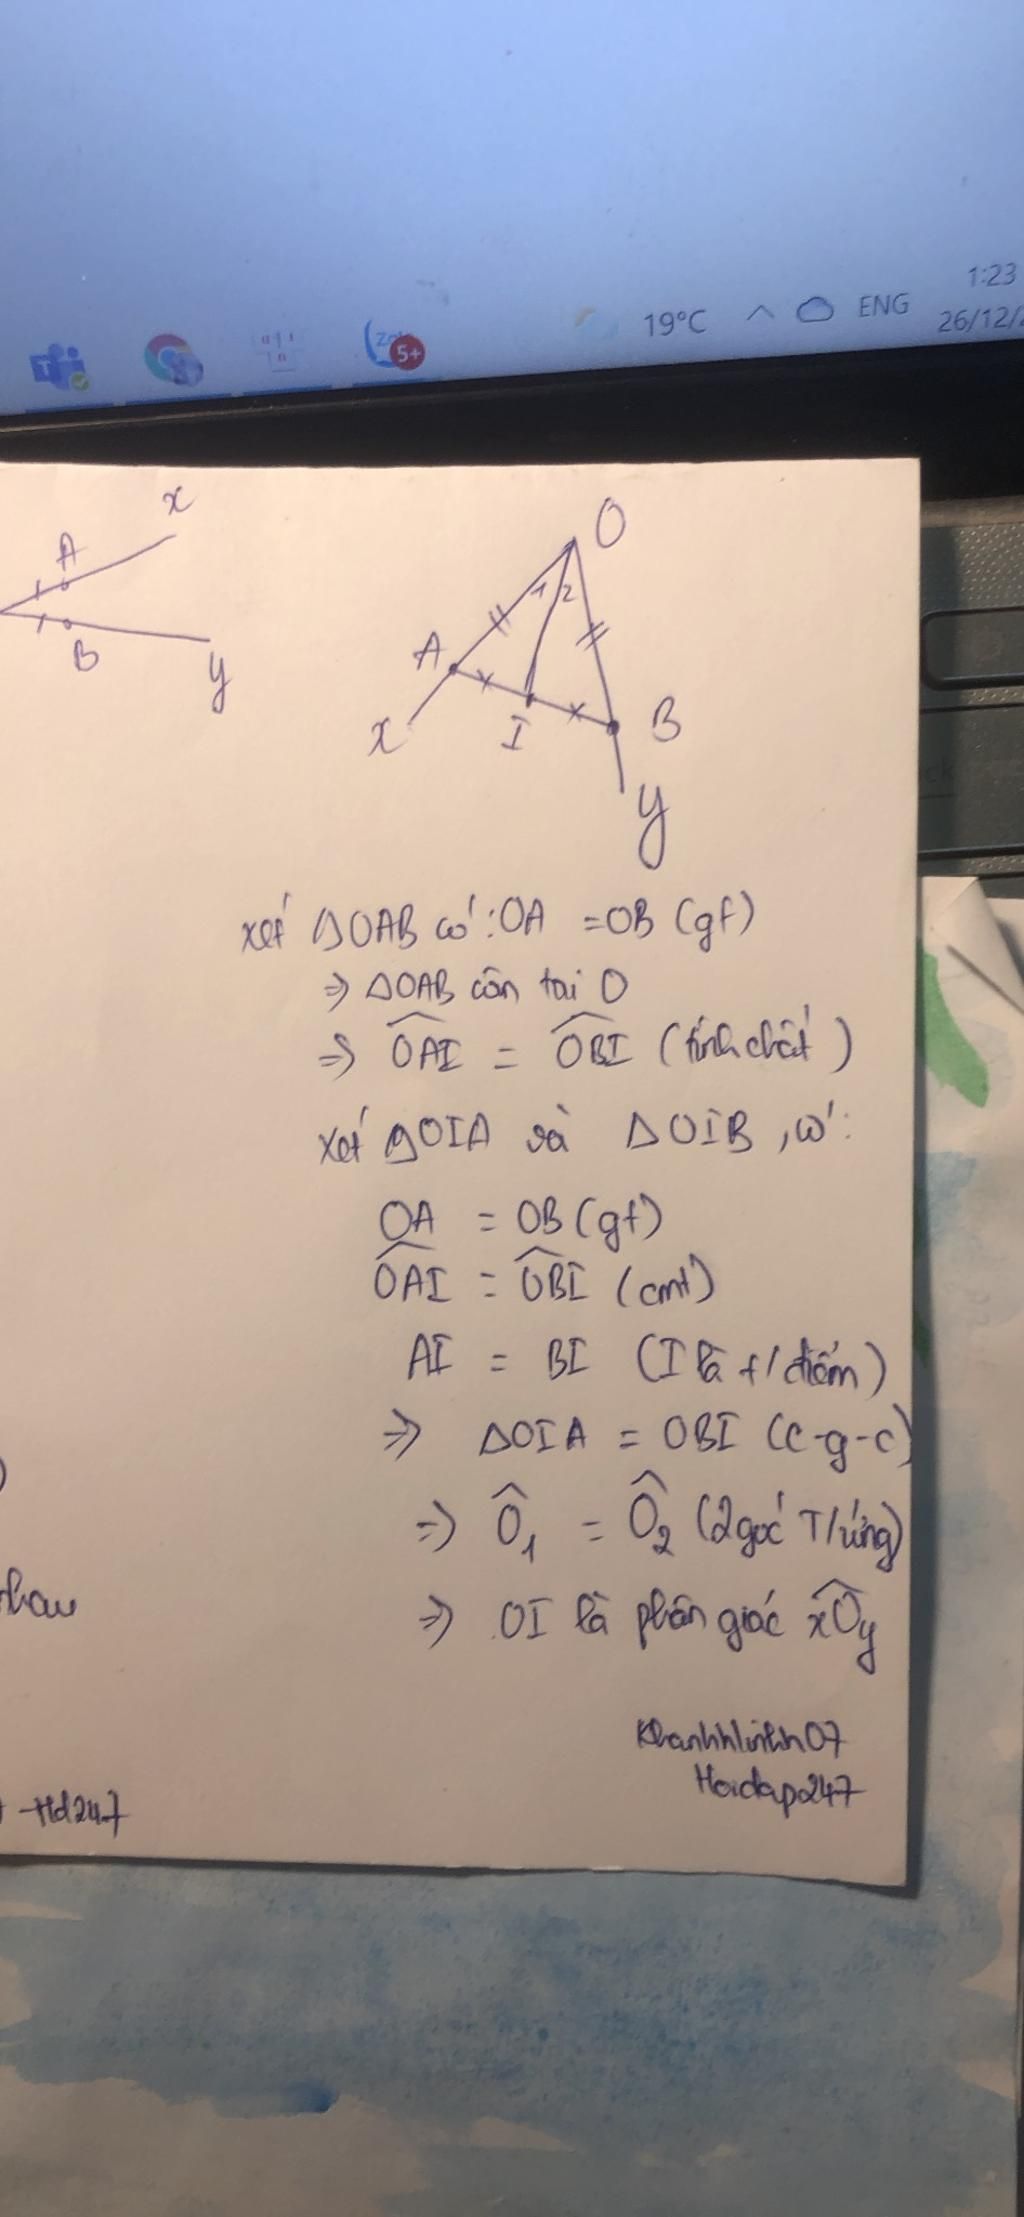 1:23
19°C ^ ENG
26/12/
5+
x
A
B
y
O
1 2
A
x
I
B
y
xét ΔOAB có: OA = OB (gt)
⇒ ΔOAB cân tại O
⇒ \widehat{OAI} = \widehat{OBI} (tính chất)
xét ΔOIA và ΔOIB, có:
OA = OB (gt)
\widehat{OAI} = \widehat{OBI} (cmt)
AI = BI (I là t/điểm)
⇒ ΔOIA = OBI (c-g-c)
⇒ \widehat{O}₁ = \widehat{O}₂ (2 góc T/ứng)
⇒ OI là phân giác \widehat{xOy}
nhau
Khanhhlinhh07
Hoidap247
-Hd247